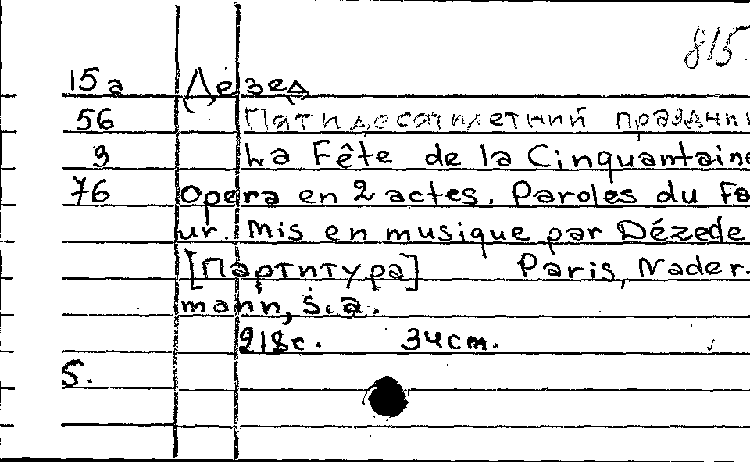 815.
15а Дезед
56 Пятидесятилетний праздни
9 La Fête de la Cinquantaine
76 Opera en 2 actes. Paroles du Fa
ur. Mis en musique par Dézede
[Партитура] Paris, Nader-
mann, s.a.
218с. 34см.
S.